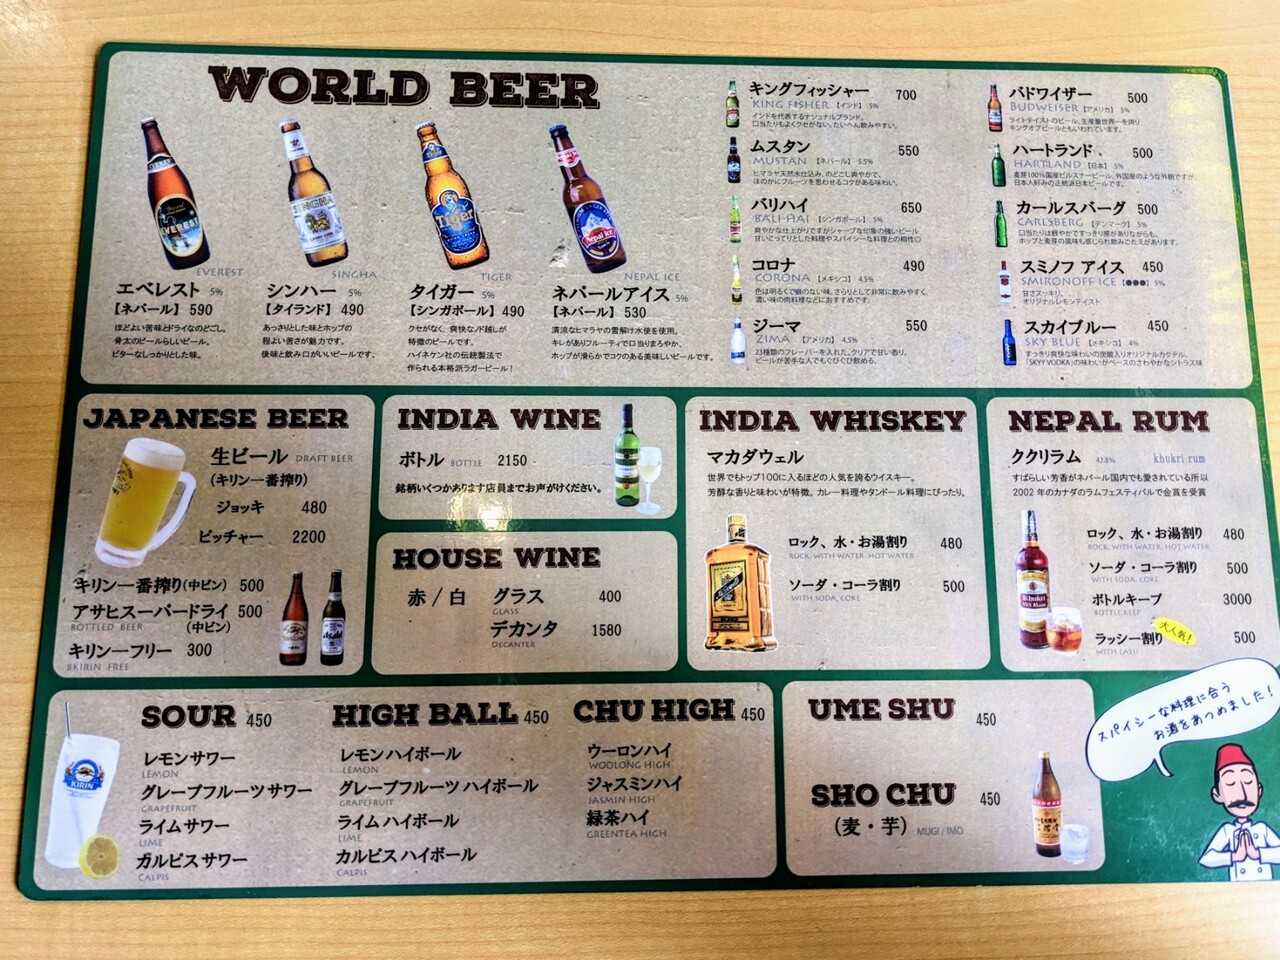 WORLD BEER
EVEREST
エベレスト 5%
【ネパール】 590
ほどよい苦味とドライなのどごし。
骨太のビールらしいビール。
ビターなしっかりとした味。
SINGHA
シンハー 5%
【タイランド】 490
あっさりとした味とホップの
程よい苦さが魅力です。
後味と飲み口がいいビールです。
TIGER
タイガー 5%
【シンガポール】 490
クセがなく、爽快なノド越しが
特徴のビールです。
ハイネケン社の伝統製法で
作られる本格派ラガービール！
NEPAL ICE
ネパールアイス 5%
【ネパール】 530
清涼なヒマラヤの雪解け水使を使用。
キレがありフルーティで口当りまろやか、
ホップが滑らかでコクのある美味しいビールです。
キングフィッシャー 700
KING FISHER 【インド】 5%
インドを代表するナショナルブランド。
口当たりもよくクセがない。たいへん飲みやすい。
ムスタン 550
MUSTAN 【ネパール】 5.5%
ヒマラヤ天然水仕込み、のどごし爽やかで、
ほのかにフルーツを思わせるコクがある味わい。
バリハイ 650
BALI-HAI 【シンガポール】 5%
爽やかな仕上がりですがシャープな印象の強いビール
甘いこってりとした料理やスパイシーな料理との相性◎
コロナ 490
CORONA 【メキシコ】 4.5%
色は明るくで癖のない味。さらりとして非常に飲みやすく、
濃い味の肉料理などにおすすめです。
ジーマ 550
ZIMA 【アメリカ】 4.5%
23種類のフレーバーを入れた、クリアで甘い香り。
ビールが苦手な人でもぐびぐび飲める。
バドワイザー 500
BUDWEISER 【アメリカ】 5%
ライトテイストのビール。生産量世界一を誇り
キングオブビールともいわれています。
ハートランド 500
HARTLAND 【日本】 5%
麦芽100%国産ピルスナービール。外国産のような外観ですが、
日本人好みの正統派日本ビールです。
カールスバーグ 500
CARLSBERG 【デンマーク】 5%
口当たりは軽やかですっきり感がありながらも、
ホップと麦芽の風味も感じられ飲みごたえがあります。
スミノフ アイス 450
SMIRONOFF ICE 【●●●】 5%
甘さスッキリ、
オリジナルレモンテイスト
スカイブルー 450
SKY BLUE 【メキシコ】 4%
すっきり爽快な味わいの炭酸入りオリジナルカクテル。
「SKYY VODKA」の味わいがベースのさわやかなシトラス味
JAPANESE BEER
生ビール DRAFT BEER
(キリン一番搾り)
ジョッキ 480
ピッチャー 2200
キリン一番搾り(中ビン) 500
アサヒスーパードライ 500
BOTTLED BEER (中ビン)
キリンーフリー 300
BKIRIN FREE
INDIA WINE
ボトル BOTTLE 2150
銘柄いくつかあります店員までお声がけください。
HOUSE WINE
赤 / 白 グラス 400
GLASS
デカンタ 1580
DECANTER
INDIA WHISKEY
マカダウェル
世界でもトップ100に入るほどの人気を誇るウイスキー。
芳醇な香りと味わいが特徴。カレー料理やタンドール料理にぴったり。
ロック、水・お湯割り 480
ROCK, WITH WATER, HOT WATER
ソーダ・コーラ割り 500
WITH SODA, COKE
NEPAL RUM
ククリラム 42.8% khukri rum
すばらしい芳香がネパール国内でも愛されている所以
2002 年のカナダのラムフェスティバルで金賞を受賞
ロック、水・お湯割り 480
ROCK, WITH WATER, HOT WATER
ソーダ・コーラ割り 500
WITH SODA, COKE
ボトルキープ 3000
BOTTLE KEEP
大人気！
ラッシー割り 500
WITH LASSI
SOUR 450
レモンサワー
LEMON
グレープフルーツサワー
GRAPEFRUIT
ライムサワー
LIME
カルピスサワー
CALPIS
KIRIN
HIGH BALL 450
レモンハイボール
LEMON
グレープフルーツハイボール
GRAPEFRUIT
ライムハイボール
LIME
カルピスハイボール
CALPIS
CHU HIGH 450
ウーロンハイ
WOOLONG HIGH
ジャスミンハイ
JASMIN HIGH
緑茶ハイ
GREENTEA HIGH
UME SHU 450
SHO CHU 450
(麦・芋) MUGI / IMO
スパイシーな料理に合う
お酒をあつめました！